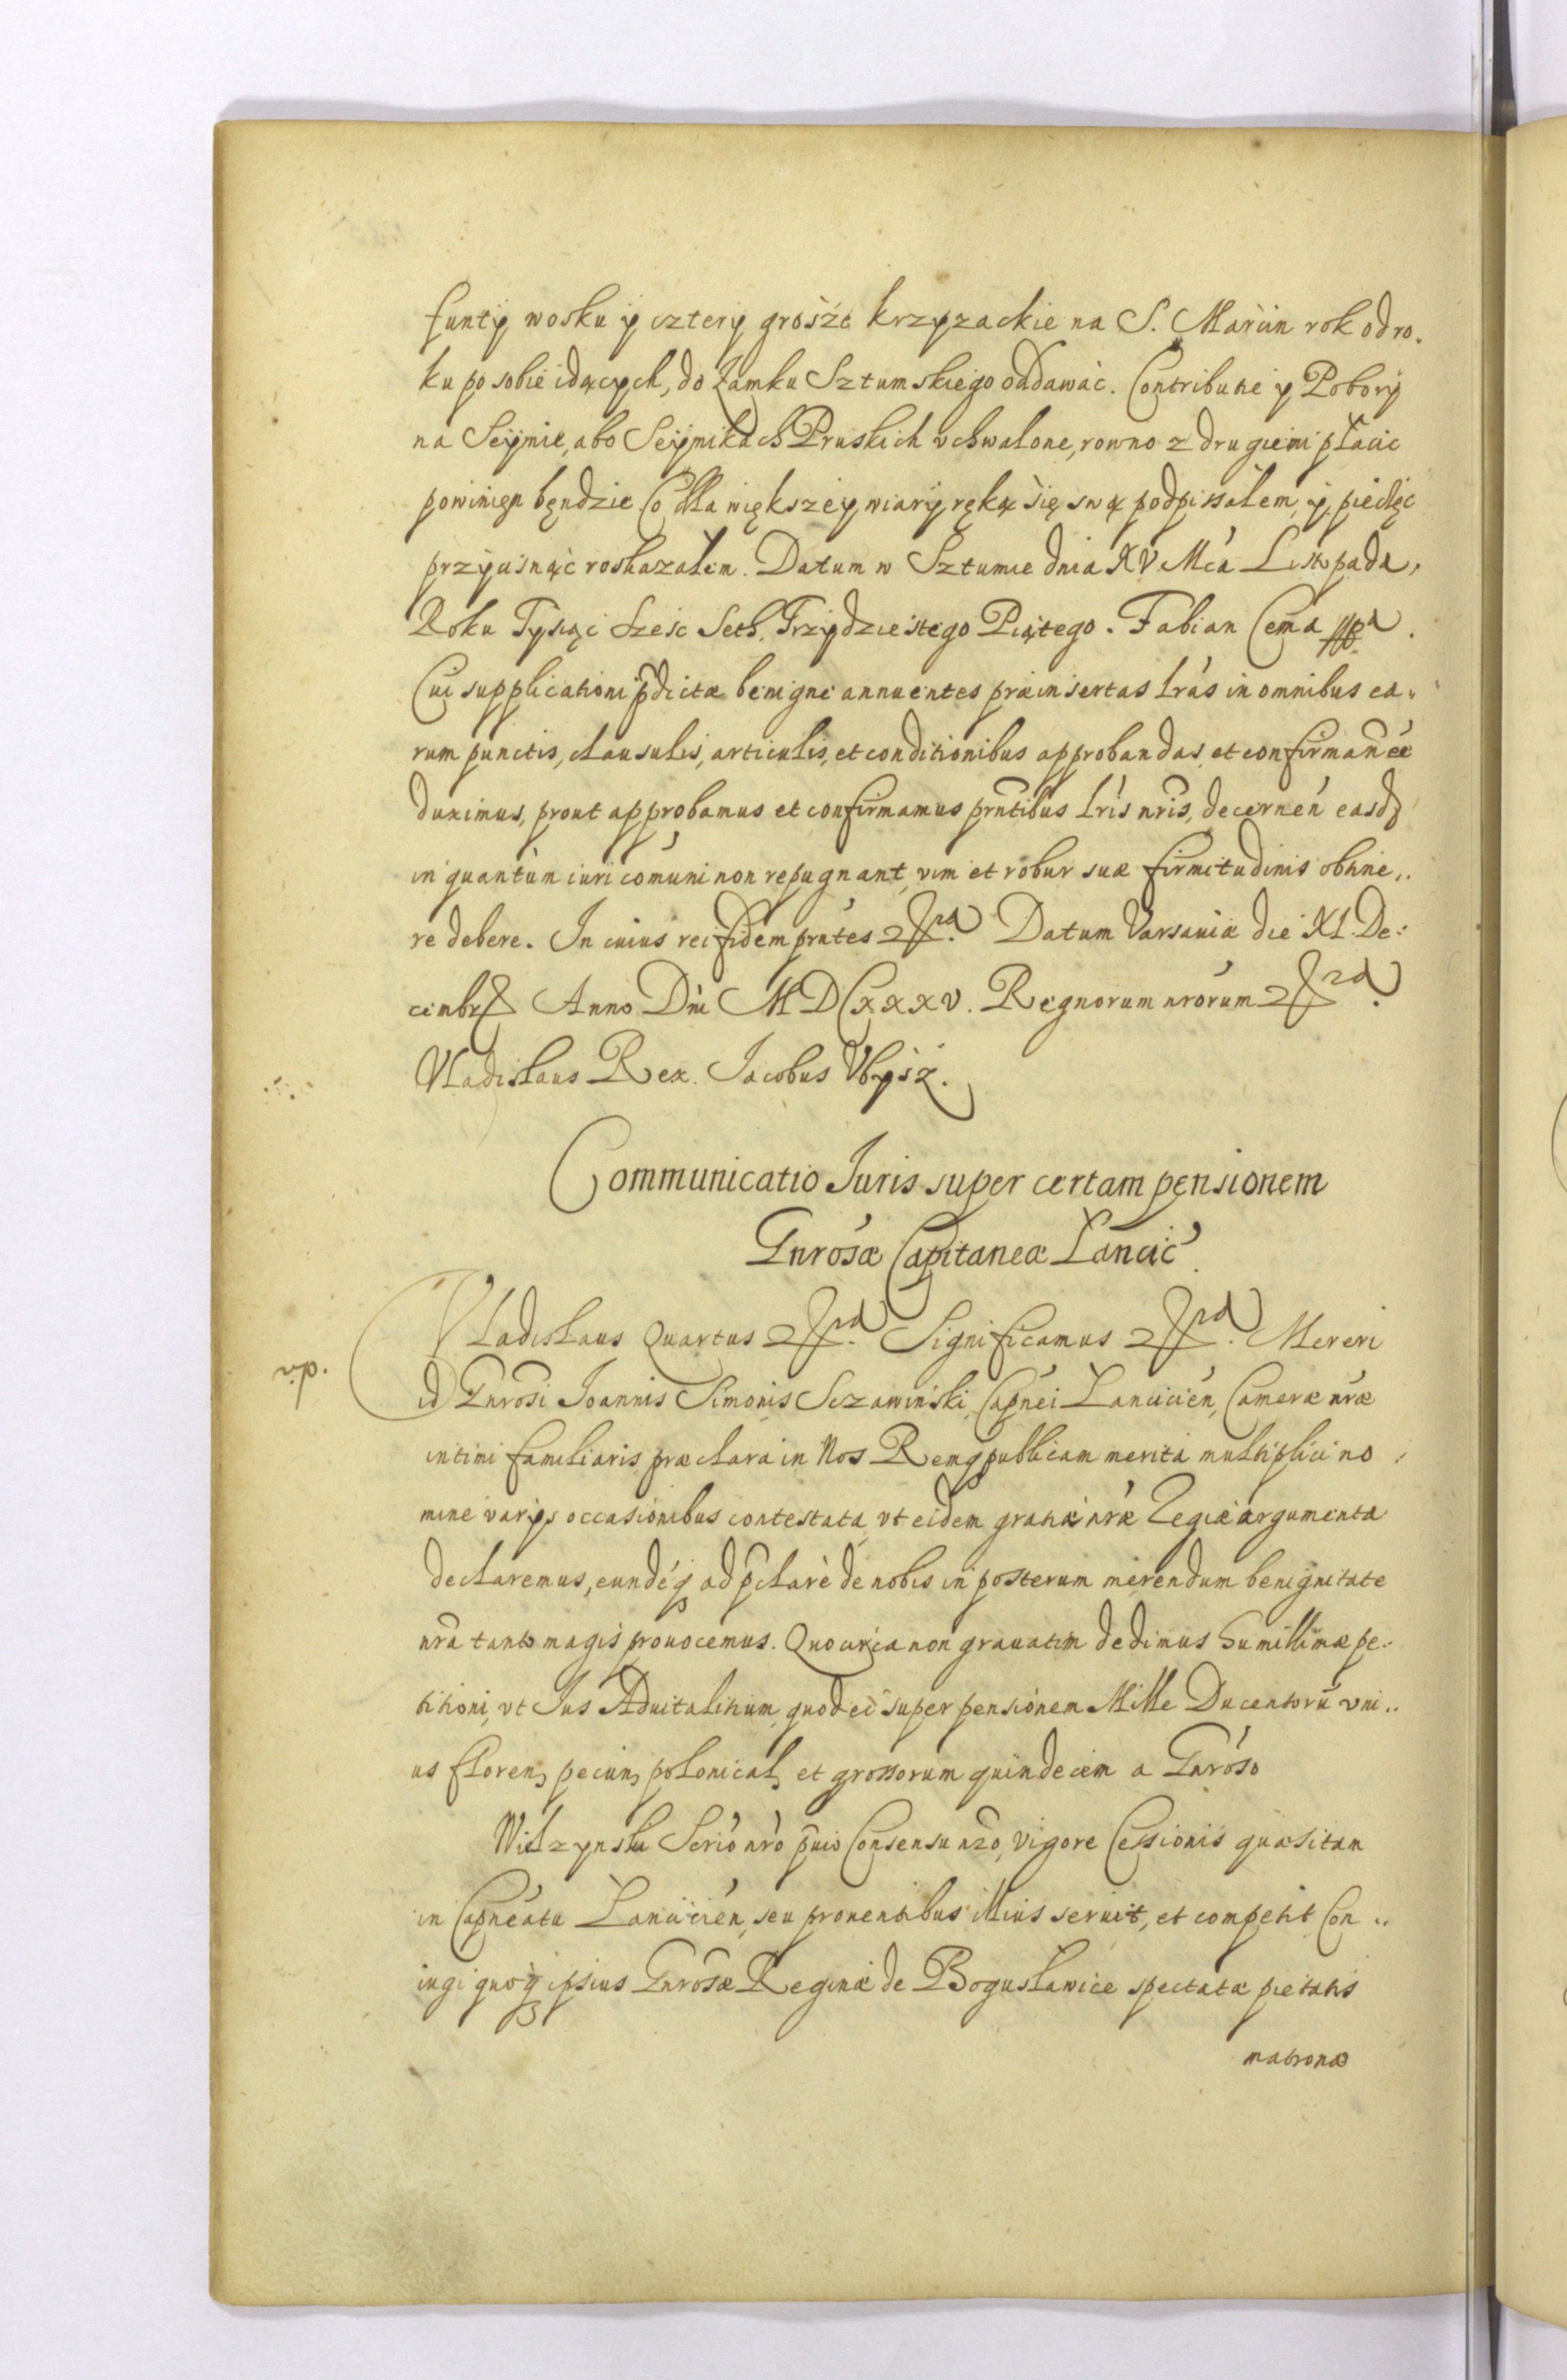 funty wosku y cztery grosze krzyzackie na S. Marcin rok od ro-
ku po sobie idących, do Zamku Sztumskiego oddawać. Contributie y Pobory
na Seymie, abo Seymikach Pruskich vchwalone, rowno z drugiemi płacic
powinien bęndzie Co dla większey wiary ręką się swą podpissałem, y pieclęc
przycisnąć roskazałem. Datum w Sztumie dnia XV Mca Listopada,
Roku Tysiąc Szesc Seth. Trzydziestego Piątego. Fabian Cema mpa.
Cui supplicationi pdictæ benigne annuentes præinsertas lras in omnibus ea-
rum punctis, clausulis, articulis, et conditionibus approbandas, et confirmandæ
duximus, prout approbamus et confirmamus prntibus lris nris, decernen easd
in quantum iuri comuni non repugnant, vim et robur suæ firmitudinis obtine-
re debere. In cuius rei fidem prntes Datum Varsauiæ die XI. De-
cembr Anno Dni MDCxxxv. Regnorum nrorum
Vladislaus Rex. Jacobus Vbysz.
Communicatio Iuris super certam pensionem
Gnrosæ Capitaneæ Lancic.
Vladislaus Quartus Significamus Mereri
id Gnrosi Joannis Simonis Sczawinski, Capnei Lancicien, Cameræ nræ
intimi familiaris præclara in Nos Remqpublicam merita multiplici no-
mine varys occasionibus contestata, vt eidem gratiæ nræ Regiæ argumenta
declaremus, eundeq ad pclare de nobis in posterum merendum benignitate
nra tanto magis prouocemus. Quocirca non grauatim dedimus humillimæ pe-
titioni, vt Ius Aduitalitium, quod ei super pensionem Mille Ducentoru vni-
us floren, pecun, polonical, et grossorum quindecim a Gnroso
Wilzynski Scrio nro puio Consensu nro, vigore Cessionis quæsitam
in Capneatu Lancicien, seu prouentibus illius seruit, et competit Con-
iugi quoq ipsius Gnrosæ Reginæ de Bogusławice spectatæ pietatis
matronæ